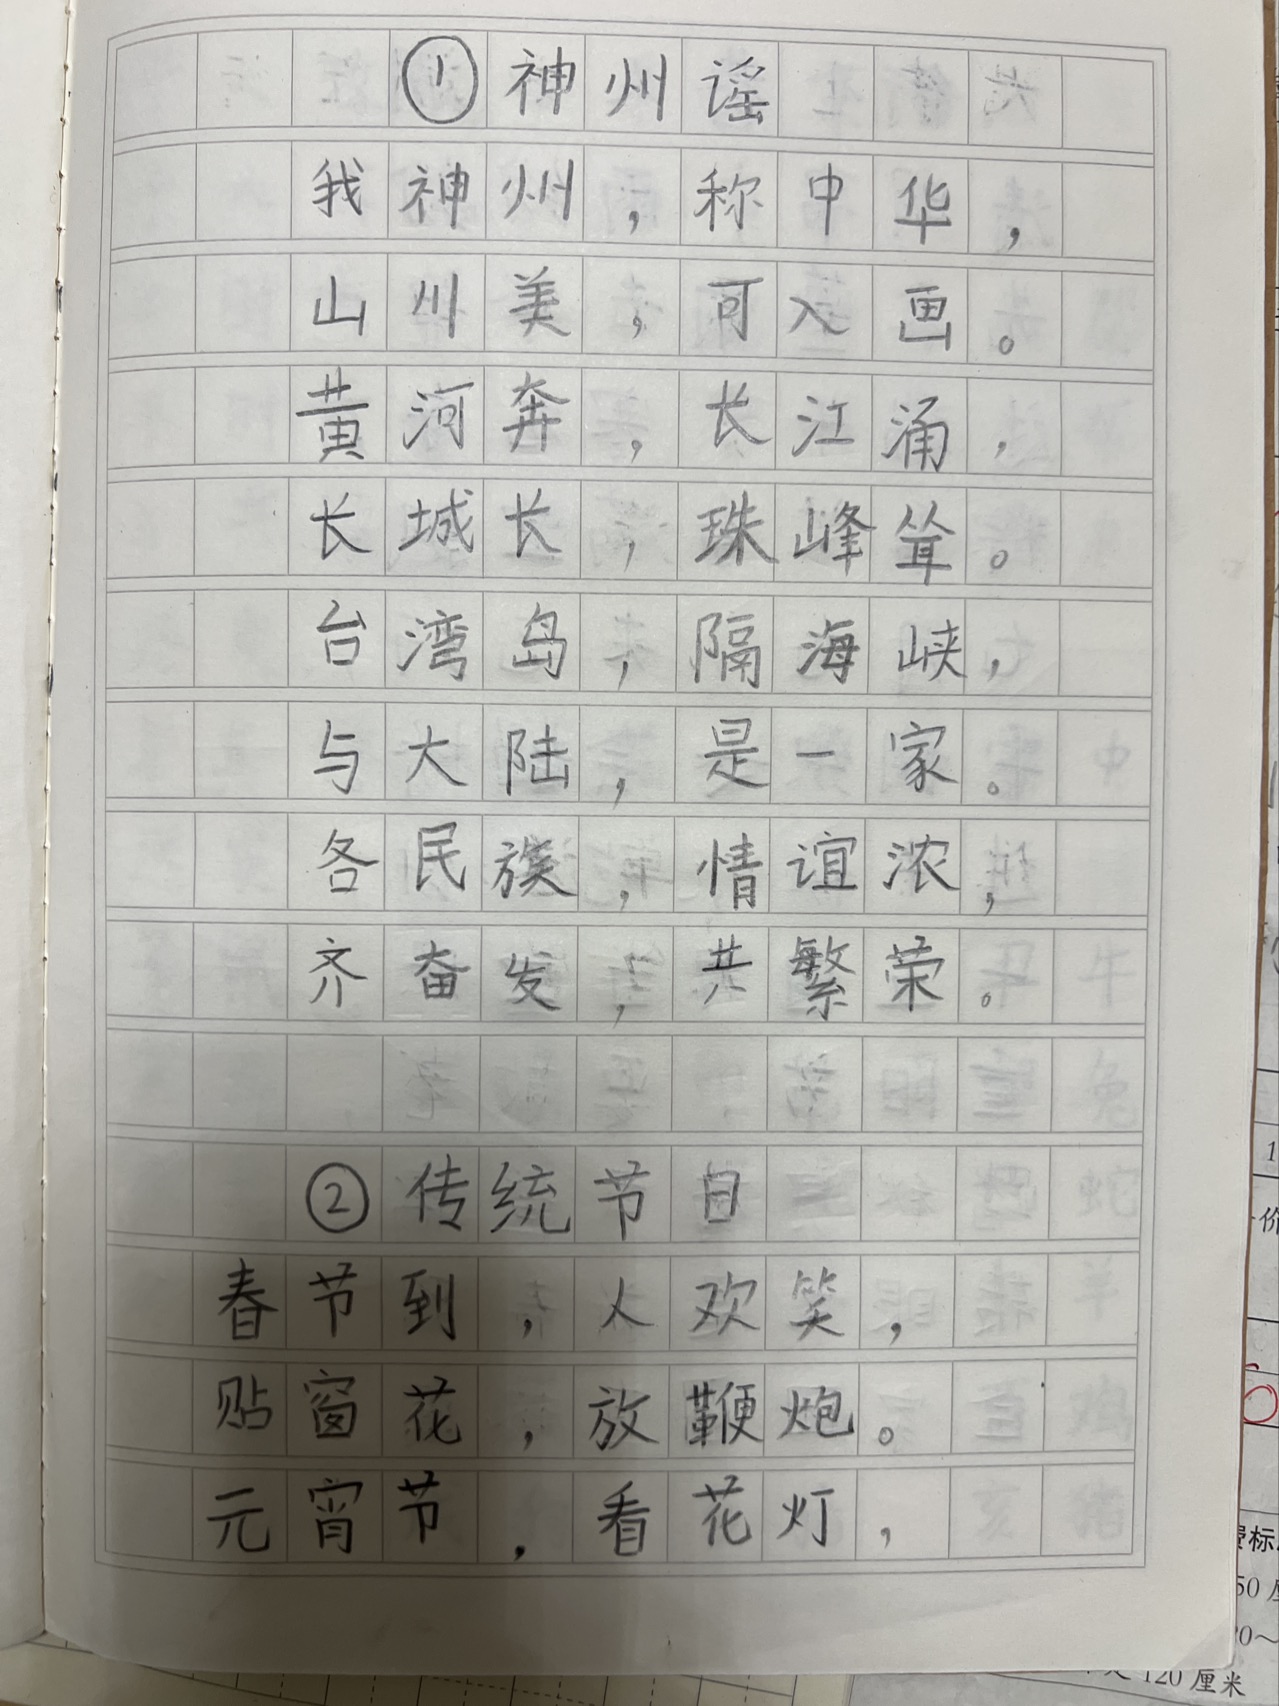 ①神州谣
我神州，称中华，
山川美，可入画。
黄河奔，长江涌，
长城长，珠峰耸。
台湾岛，隔海峡，
与大陆，是一家。
各民族，情谊浓，
齐奋发，共繁荣。
②传统节日
春节到，人欢笑，
贴窗花，放鞭炮。
元宵节，看花灯，
120厘米